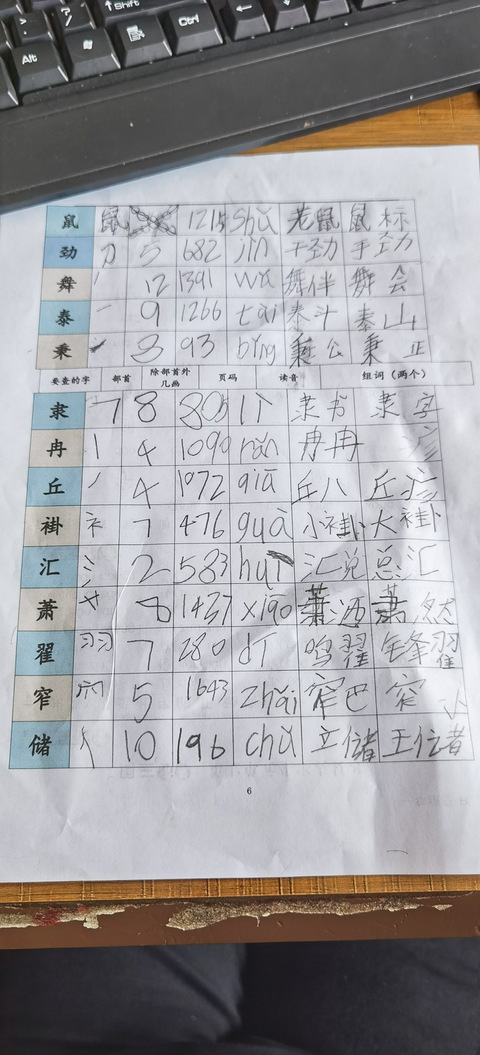 Shift
Alt
Ctrl
鼠 鼠 1215 shǔ 老鼠 鼠标
劲 力 5 682 jìn 干劲 手劲
舞 丿 12 1391 wǔ 舞伴 舞会
泰 一 9 1266 tài 泰斗 泰山
秉 3 93 bǐng 秉公 秉正
要查的字 部首 除部首外几画 页码 读音 组词（两个）
隶 8 805 lì 隶书 隶字
冉 丨 4 1090 rǎn 冉冉
丘 丿 4 1072 qiū 丘八 丘疹
褂 衤 7 476 guà 小褂 大褂
汇 氵 2 583 huì 汇兑 总汇
萧 艹 8 1437 xiāo 萧洒 萧然
翟 羽 7 280 dí 鸣翟 翟
窄 5 1643 zhǎi 窄巴 窄小
储 亻 10 196 chǔ 立储 王储
6